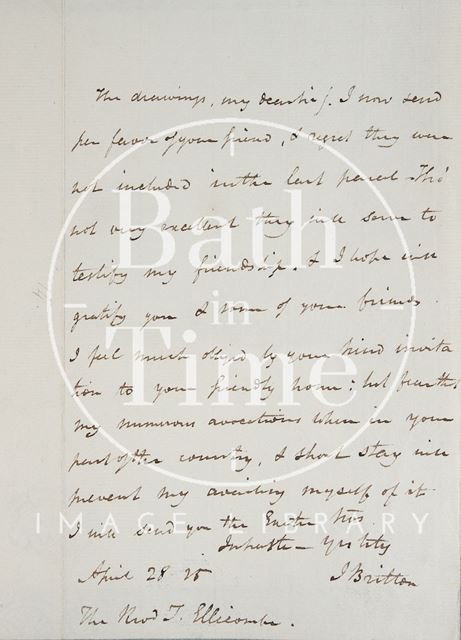 The drawings, my dear Sir, I now send
per favor of your friend, & regret they were
not included in the last parcel - Tho'
not very excellent they will serve to
testify my friendship. & I hope will
gratify you & some of your friends.
I feel much obliged by your kind invita
tion to your friendly home; but fear that
my numerous avocations when in your
part of the country, & short stay will
prevent my availing myself of it
I will send you the Exeter Nos.
In haste - Yrs
April 28 25 J Britton
The Revd Ellicombe.
Bath
in
Time
IMAGE LIBRARY